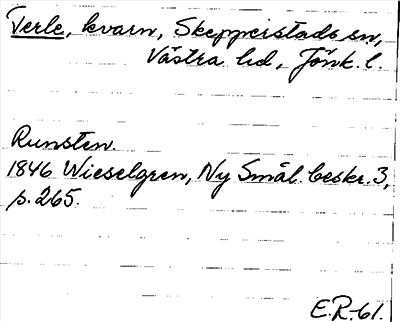 Terle, kvarn, Skepperstads sn,
Västra hd, Jönk. l.
Runsten.
1846 Wieselgren, Ny Smål. beskr. 3,
p. 265.
E.R-61.